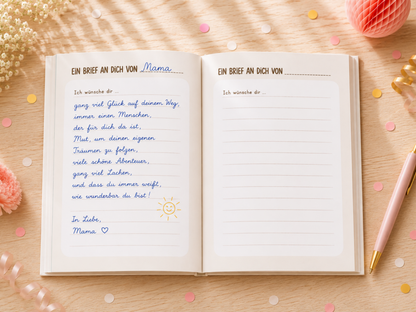 EIN BRIEF AN DICH VON Mama
Ich wünsche dir ...
ganz viel Glück auf deinem Weg,
immer einen Menschen,
der für dich da ist,
Mut, um deinen eigenen
Träumen zu folgen,
viele schöne Abenteuer,
ganz viel Lachen,
und dass du immer weißt,
wie wunderbar du bist!
In Liebe,
Mama ♡
EIN BRIEF AN DICH VON
Ich wünsche dir ...